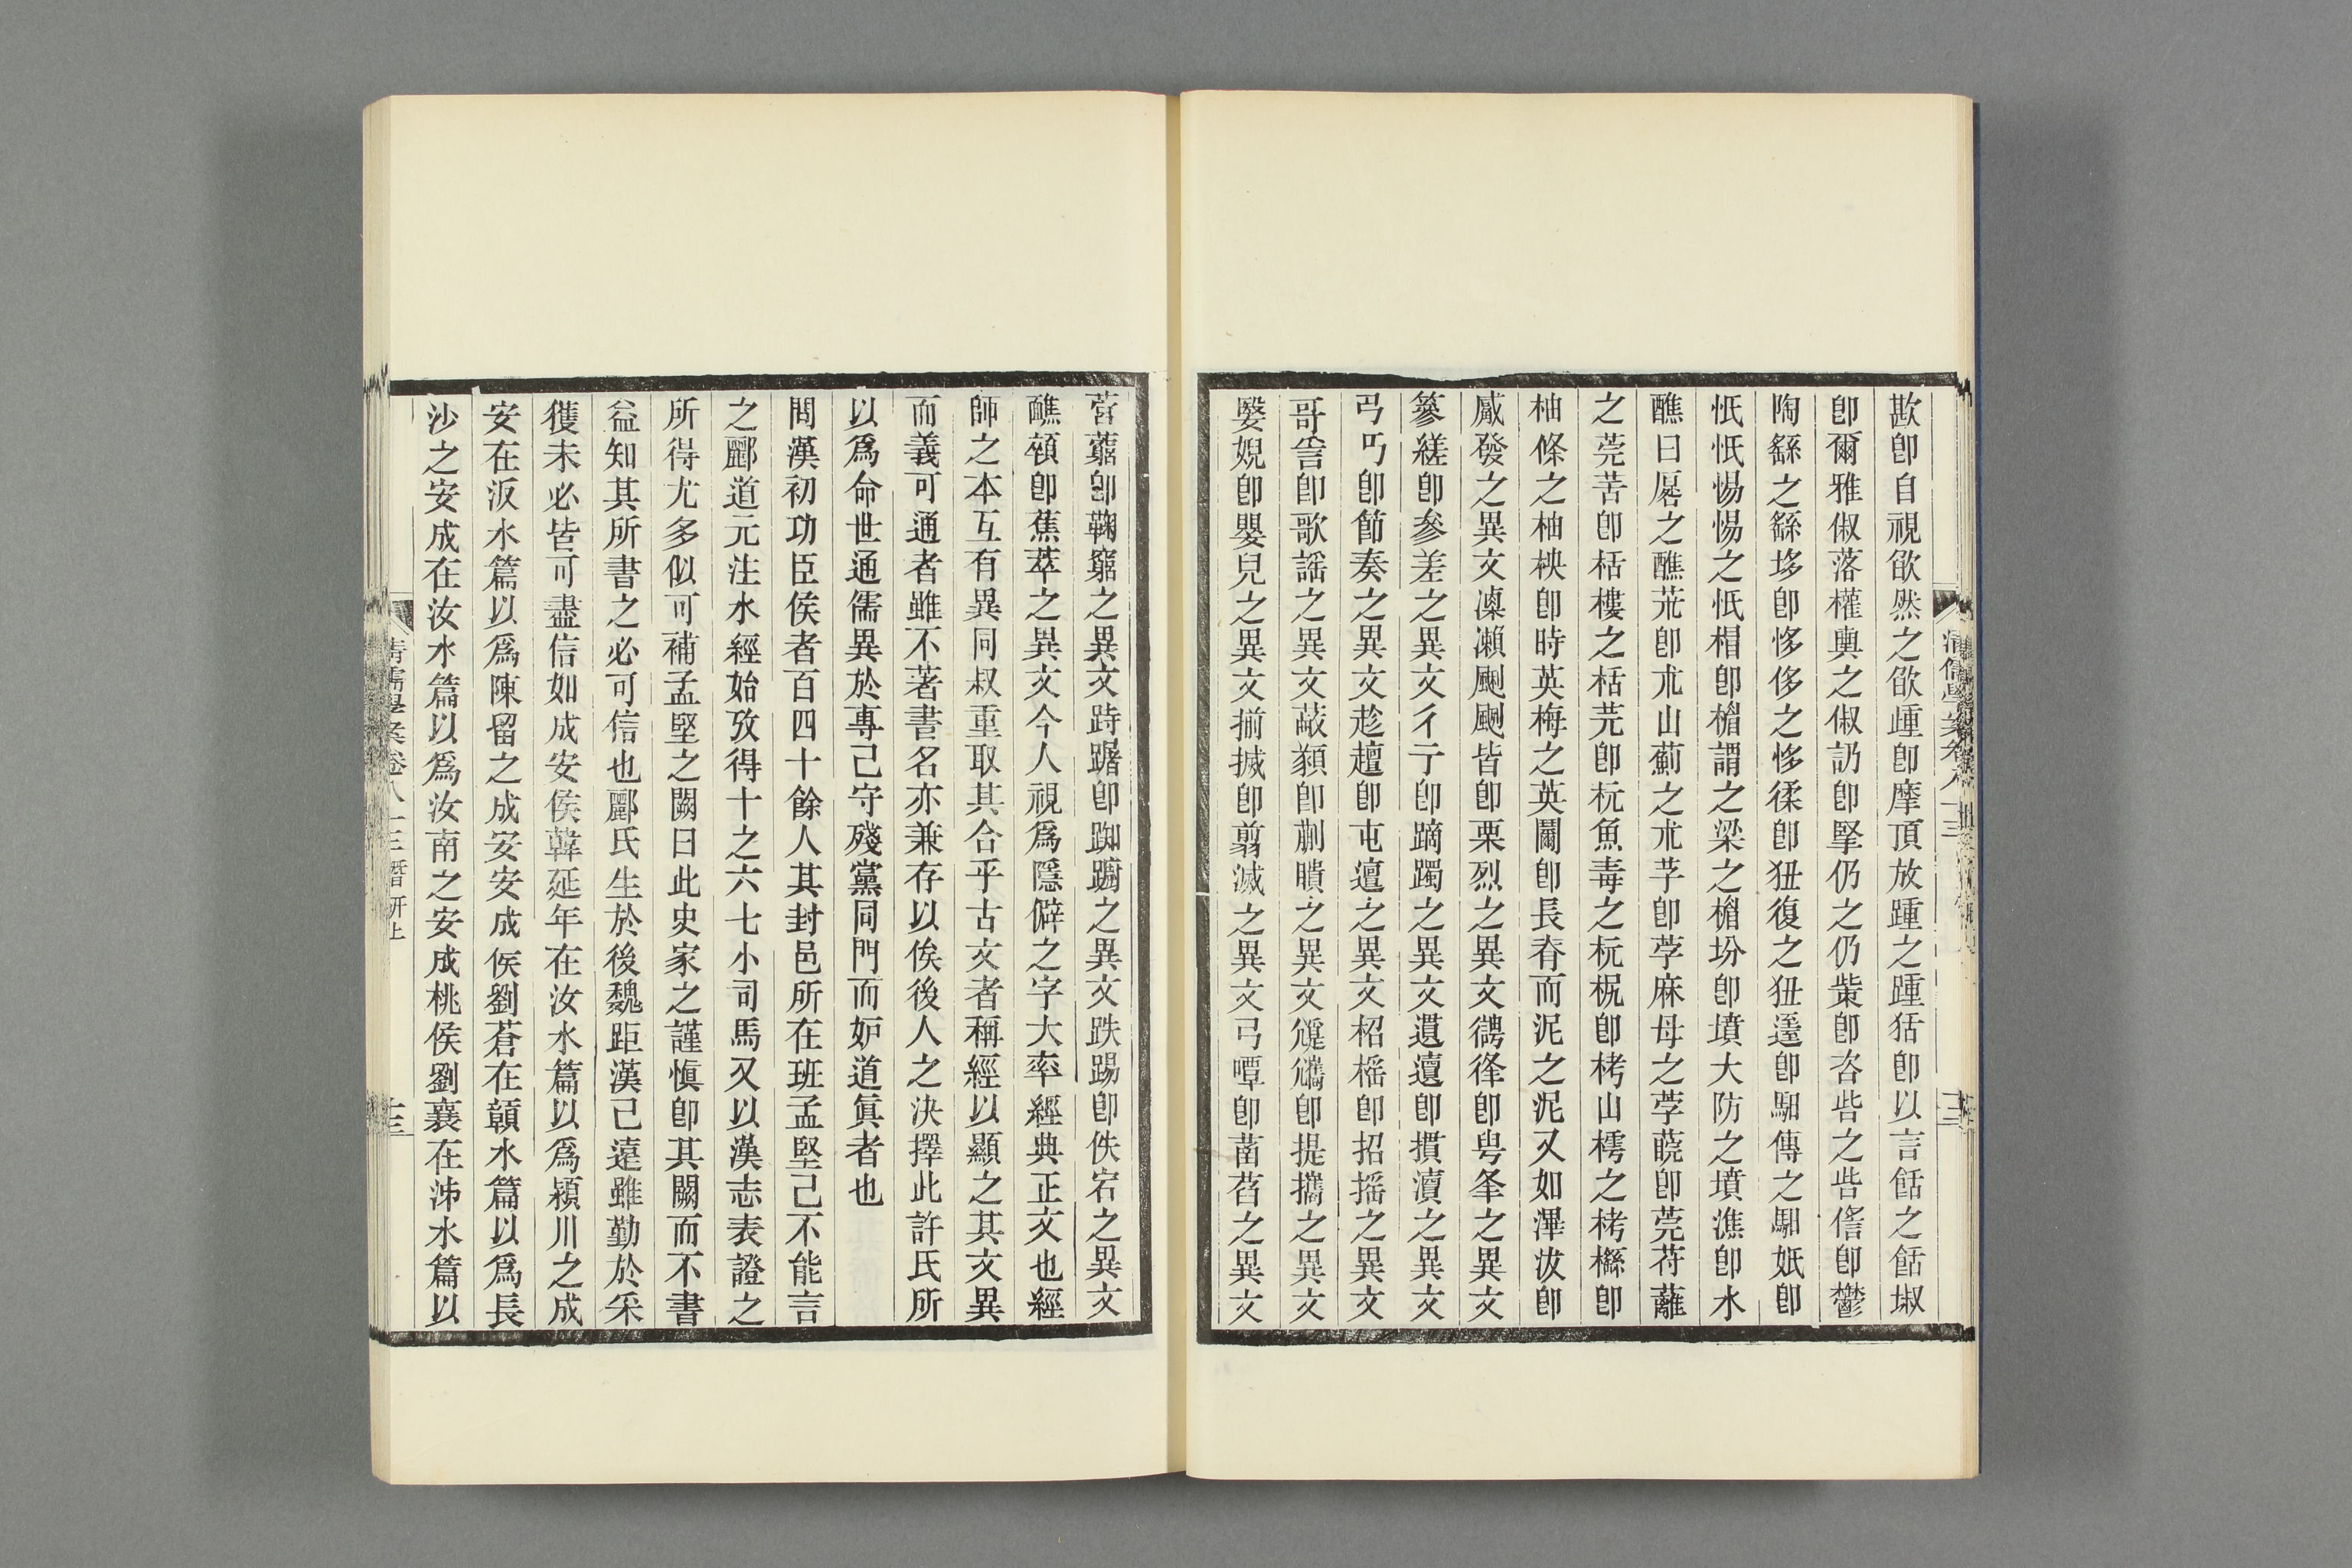 歁卽自視欿然之欿㣫卽摩頂放踵之踵狧卽以言餂之餂埱
卽爾雅俶落權輿之俶訒卽掔仍之仍㧘卽咨呰之呰㑾卽鬱
陶繇之繇垑卽恀侈之恀猱卽狃復之狃遳卽馹傳之馹㚷卽
忯忯惕惕之忯㮌卽檐謂之梁之檐坋卽墳大防之墳潐卽水
醮曰厬之醮茮卽朮山薊之朮芓卽荸麻母之荸薧卽莞苻蘺
之莞苦卽栝樓之栝芫卽杬魚毒之杬柅卽栲山樗之栲櫾卽
柚條之柚柍卽時英梅之英䦨卽長脊而泥之泥又如滭冹卽
觱發之異文凓瀨颲颲皆卽栗烈之異文德夆卽甹夆之異文
篸縒卽參差之異文彳亍卽蹢躅之異文遺遦卽摜瀆之異文
弓丂卽節奏之異文趁䞡卽屯邅之異文柖榣卽招搖之異文
哥䚻卽歌謠之異文蔽䫉卽蒯聵之異文㒔㒞卽提攜之異文
嫛婗卽嬰兒之異文揃搣卽翦滅之異文弓嘾卽菡萏之異文
营藭卽鞠窮之異文跱躇卽踟躕之異文跌踢卽佚宕之異文
醮顇卽蕉萃之異文今人視爲隱僻之字大率經典正文也經
師之本互有異同叔重取其合乎古文者稱經以顯之其文異
而義可通者雖不著書名亦兼存以俟後人之決擇此許氏所
以爲命世通儒異於專己守殘黨同門而妒道眞者也
問漢初功臣侯者百四十餘人其封邑所在班孟堅已不能言
之酈道元注水經始攷得十之六七小司馬又以漢志表證之
所得尤多似可補孟堅之闕曰此史家之謹愼卽其闕而不書
益知其所書之必可信也酈氏生於後魏距漢已遠雖勤於采
獲未必皆可盡信如成安侯韓延年在汝水篇以爲潁川之成
安在汳水篇以爲陳留之成安安成侯劉蒼在贑水篇以爲長
沙之安成在汝水篇以爲汝南之安成桃侯劉襄在沛水篇以
清儒學案卷八十三 潛研上
十三